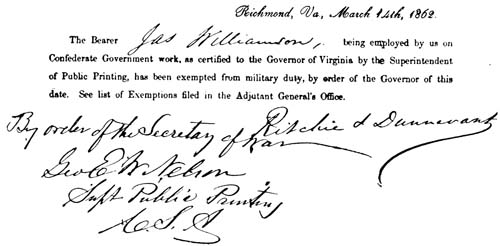 Richmond, Va, March 14th, 1862.
The Bearer Jas Williamson, being employed by us on
Confederate Government work, as certified to the Governor of Virginia by the Superintendent
of Public Printing, has been exempted from military duty, by order of the Governor of this
date. See list of Exemptions filed in the Adjutant General's Office.
Ritchie & Dunnavant
By order of the Secretary of War
Geo E W Nelson
Supt Public Printing
C. S. A